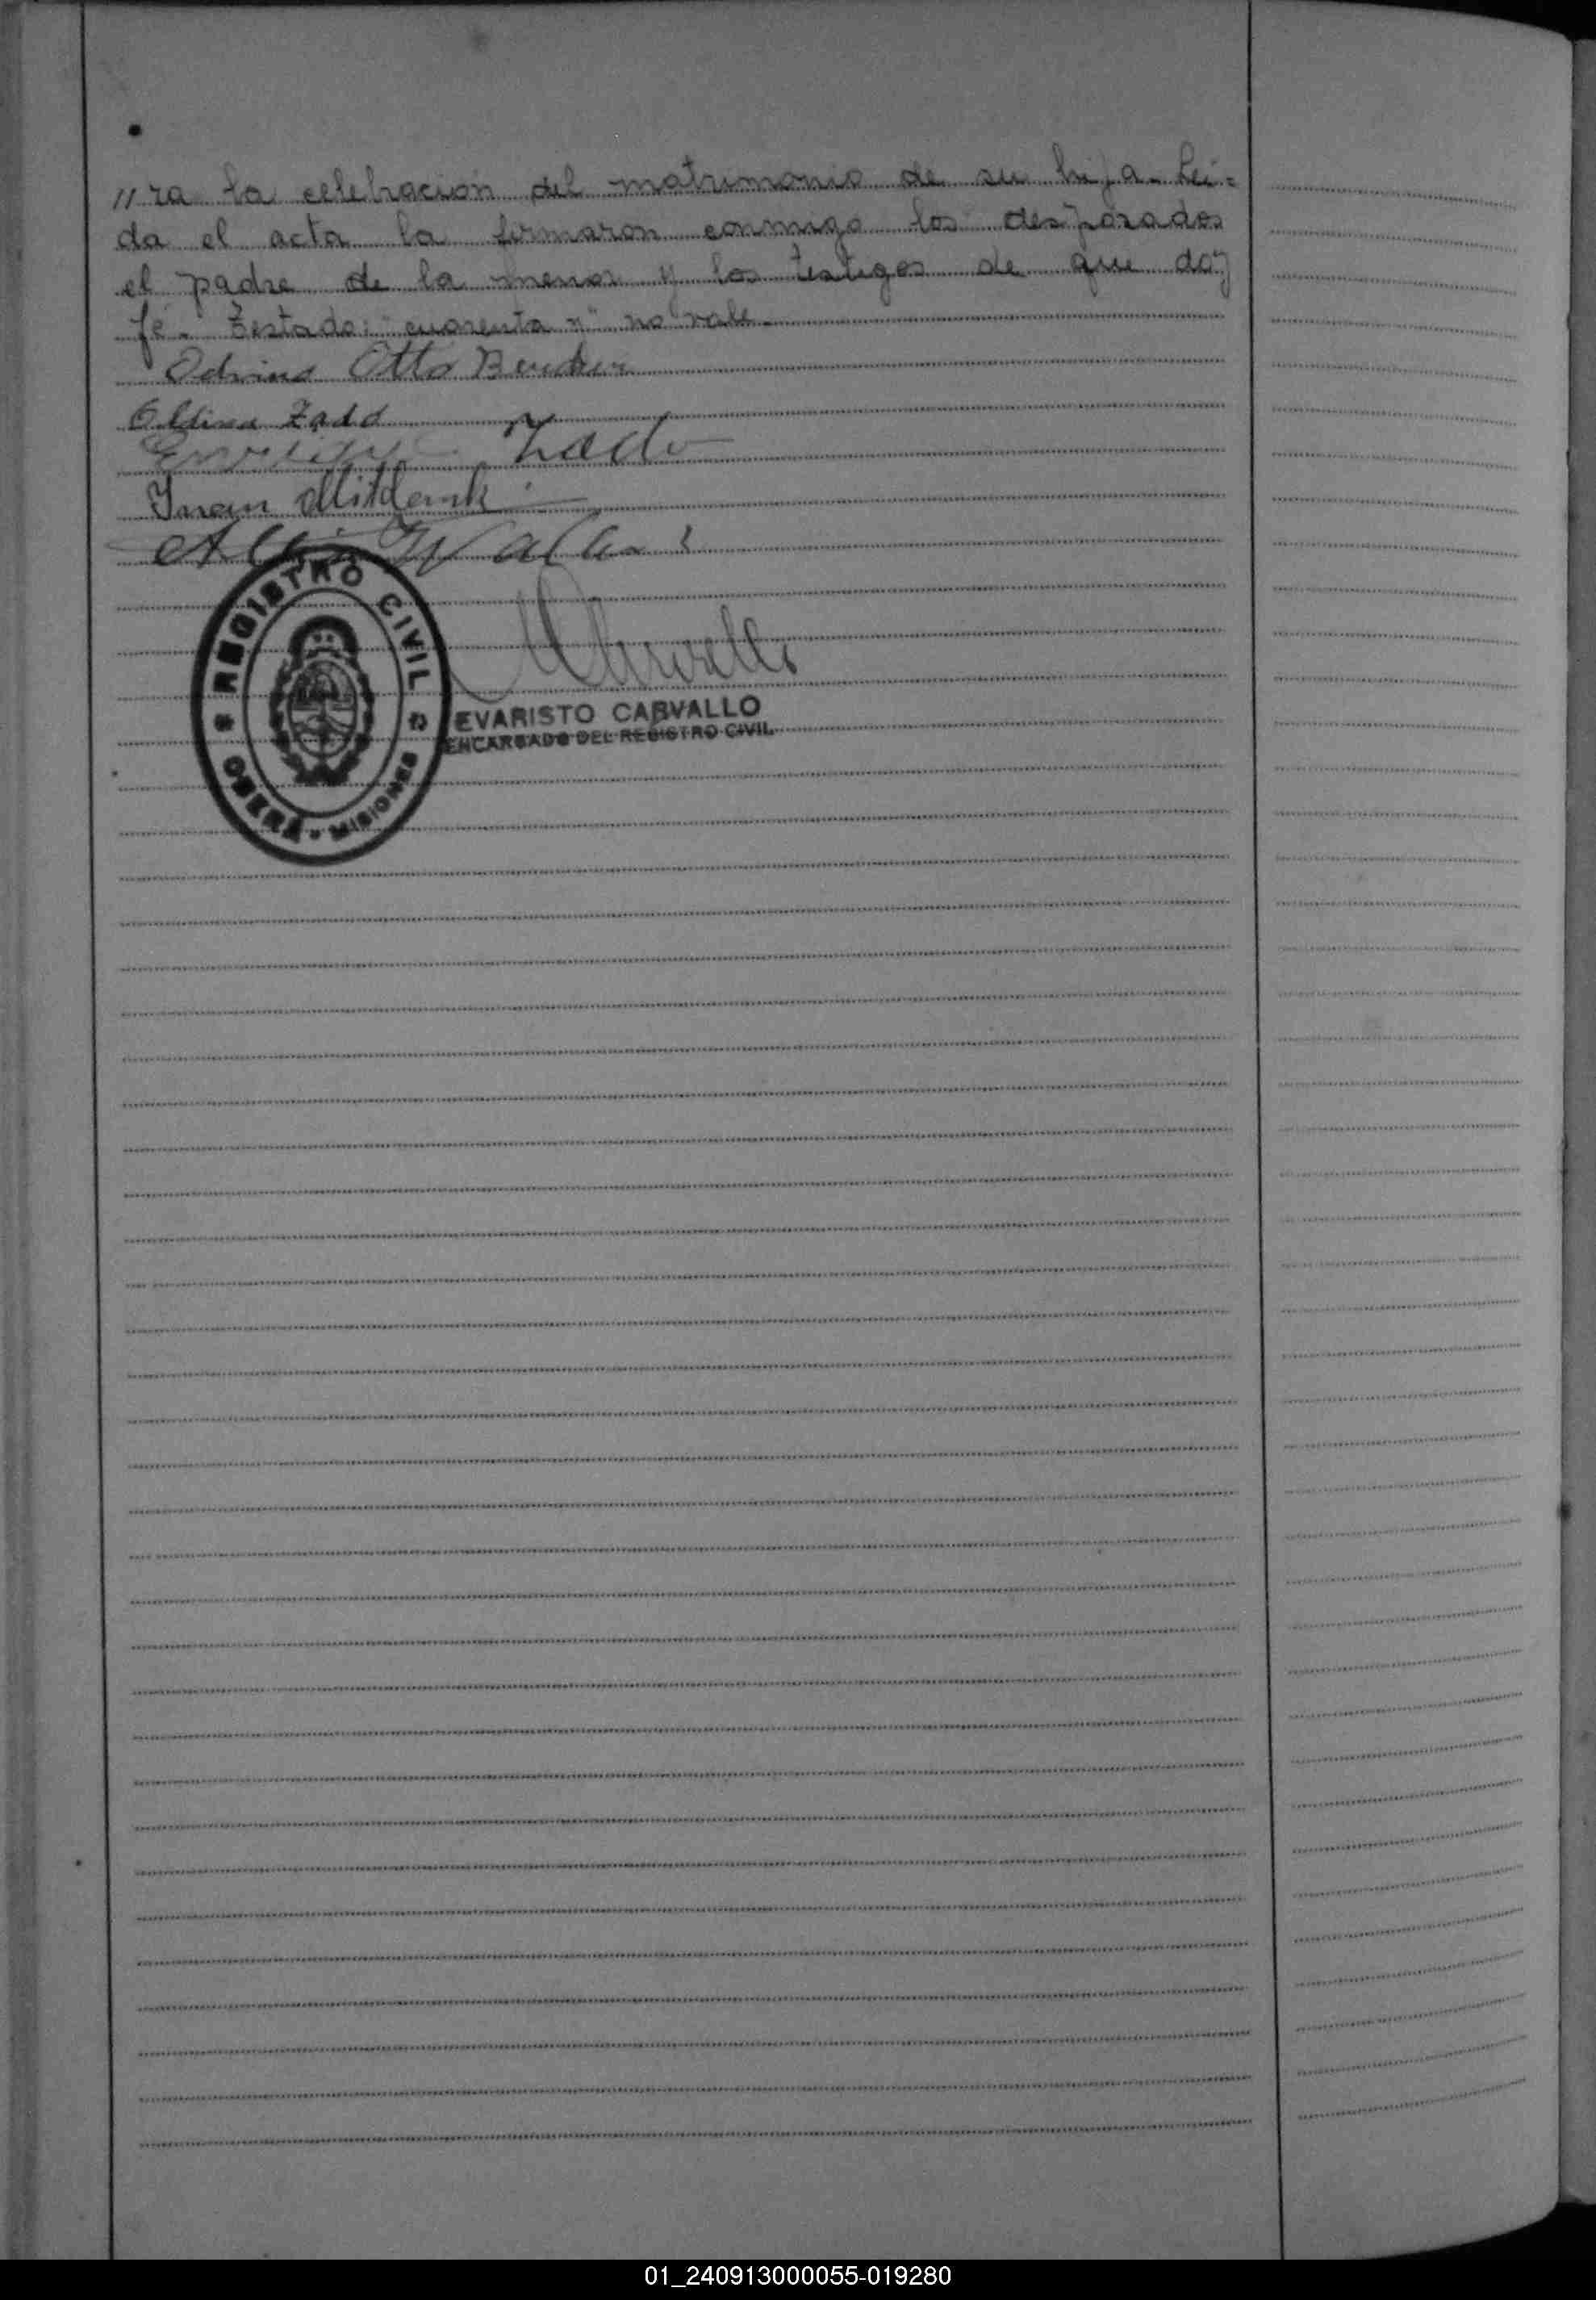 //ra la celebracion del matrimonio de su hija. Lei=
da el acta la firmaron conmigo los desposados
el padre de la menor y los testigos de que doy
fé. Testado: "cuarenta y" no vale.
Otto
Zado
Juan
REGISTRO CIVIL
OBERA - MISIONES
EVARISTO CARVALLO
ENCARGADO DEL REGISTRO CIVIL
01_240913000055-019280